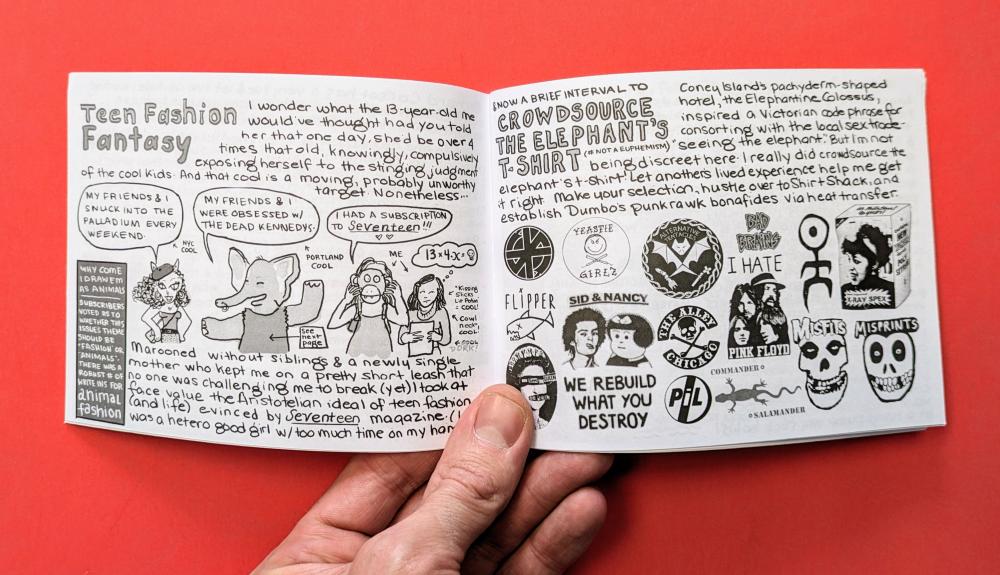 Teen Fashion
Fantasy
I wonder what the 13-year-old me
would've thought had you told
her that one day, she'd be over 4
times that old, knowingly, compulsively
exposing herself to the stinging judgment
of the cool kids. And that cool is a moving, probably unworthy
target. Nonetheless...
MY FRIENDS & I
SNUCK INTO THE
PALLADIUM EVERY
WEEKEND.
NYC
COOL
MY FRIENDS & I
WERE OBSESSED W/
THE DEAD KENNEDYS.
PORTLAND
COOL
I HAD A SUBSCRIPTION
TO Seventeen!!!
ME
13x4-x=
*Kissing
= COOL!
*Cowl
neck,
COOL
see
next
page
WHY COME
I DRAW EM
AS ANIMALS
SUBSCRIBERS
VOTED AS TO
WHETHER THIS
ISSUES THEME
SHOULD BE
"FASHION" OR
"ANIMALS".
THERE WAS A
ROBUST # OF
WRITE INS FOR
animal
fashion
Marooned without siblings & a newly single
mother who kept me on a pretty short leash that
no one was challenging me to break (yet) I took at
face value the Aristotelian ideal of teen fashion
(and life) evinced by Seventeen magazine. (I
was a hetero good girl w/ too much time on my
& NOW A BRIEF INTERVAL TO
CROWDSOURCE
THE ELEPHANT'S
T-SHIRT (* NOT A EUPHEMISM)
Coney Island's pachyderm-shaped
hotel, the Elephantine Colossus,
inspired a Victorian code phrase for
consorting with the local sex trade-
"seeing the elephant." But I'm not
being discreet here. I really did crowdsource the
elephant's t-shirt. Let another's lived experience help me get
it right. Make your selection, hustle over to Shirt Shack, and
establish Dumbo's punk rawk bonafides via heat transfer.
YEASTIE
GIRLZ
ALTERNATIVE
TENTACLES
BAD
BRAINS
I HATE
PINK FLOYD
X-RAY SPEX
FLIPPER
SID & NANCY
THE ALLEY
CHICAGO
MISFITS
MISPRINTS
WE REBUILD
WHAT YOU
DESTROY
PiL
COMMANDER
SALAMANDER